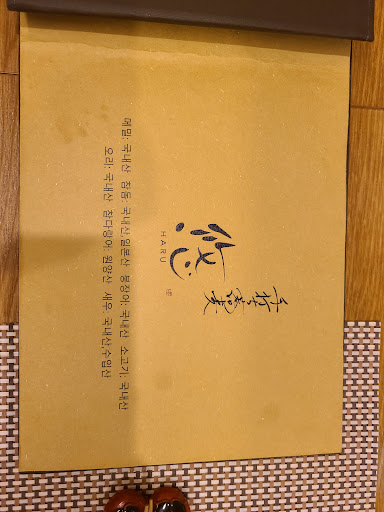 手打蕎麦
悠
HARU
메밀: 국내산 참돔: 국내산,일본산 붕장어: 국내산 소고기: 국내산
오리: 국내산 참다랑어: 원양산 새우: 국내산,수입산